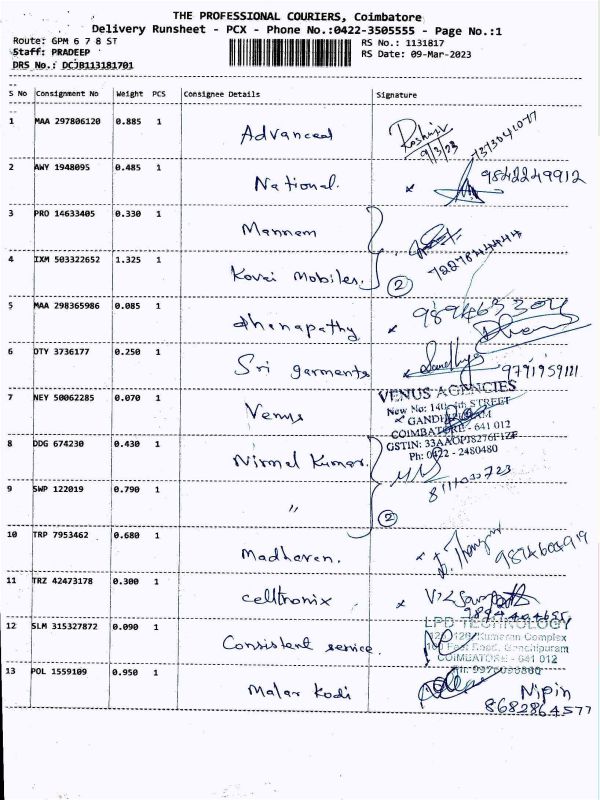 THE PROFESSIONAL COURIERS, Coimbatore
Delivery Runsheet - PCX - Phone No.:0422-3505555 - Page No.:1
Route: GPM 6 7 8 ST
RS No.: 1131817
Staff: PRADEEP
RS Date: 09-Mar-2023
DRS No.: DCJB113181701
S No Consignment No Weight PCS Consignee Details Signature
1 MAA 297806120 0.885 1 Advanced
9/3/23 7373041077
2 AWY 1948095 0.485 1 National. x 9842249912
3 PRO 14633405 0.330 1 Mannam
4 IXM 503322652 1.325 1 Kovai Mobiles. 2
5 MAA 298365986 0.085 1 dhanapathy x
6 OTY 3736177 0.250 1 Sri garments x Sandhya 9791959111
7 NEY 50062285 0.070 1 Venus
VENUS AGENCIES
STREET
COIMBATORE - 641 012
GSTIN: 33AAOPJ8276F1ZF
Ph: 0422 - 2480480
8 DDG 674230 0.430 1 Nirmal Kumar.
9 SWP 122019 0.790 1 " 2
10 TRP 7953462 0.680 1 Madhaven. x
11 TRZ 42473178 0.300 1 celltronix x
12 SLM 315327872 0.090 1 Consistent service.
LPD TECHNOLOGY
Kumaran Complex
COIMBATORE - 641 012
13 POL 1559109 0.950 1 Malar Kodi
Nipin
8682864577